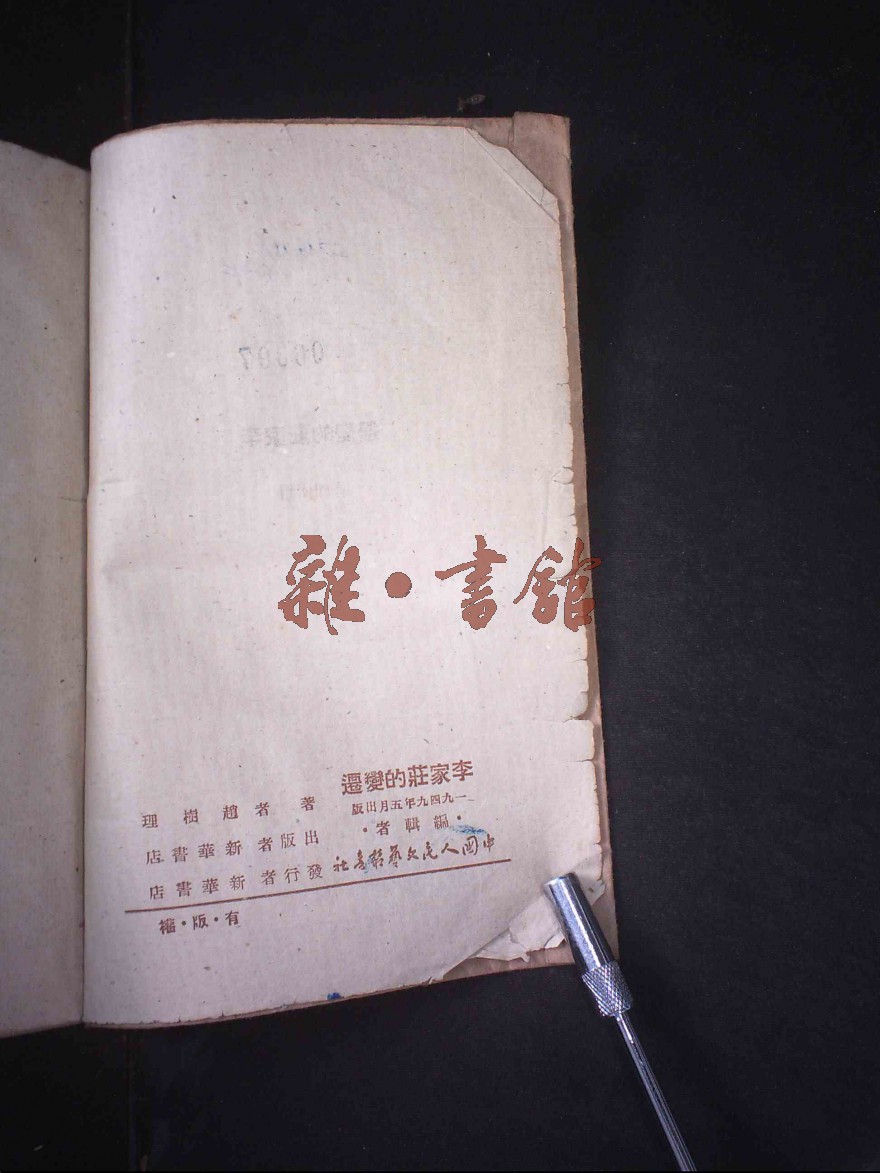 雜·書館
李家莊的變遷
一九四九年五月出版
·編輯者·
中國人民文藝叢書社
著者趙樹理
出版者新華書店
發行者新華書店
有·版·權